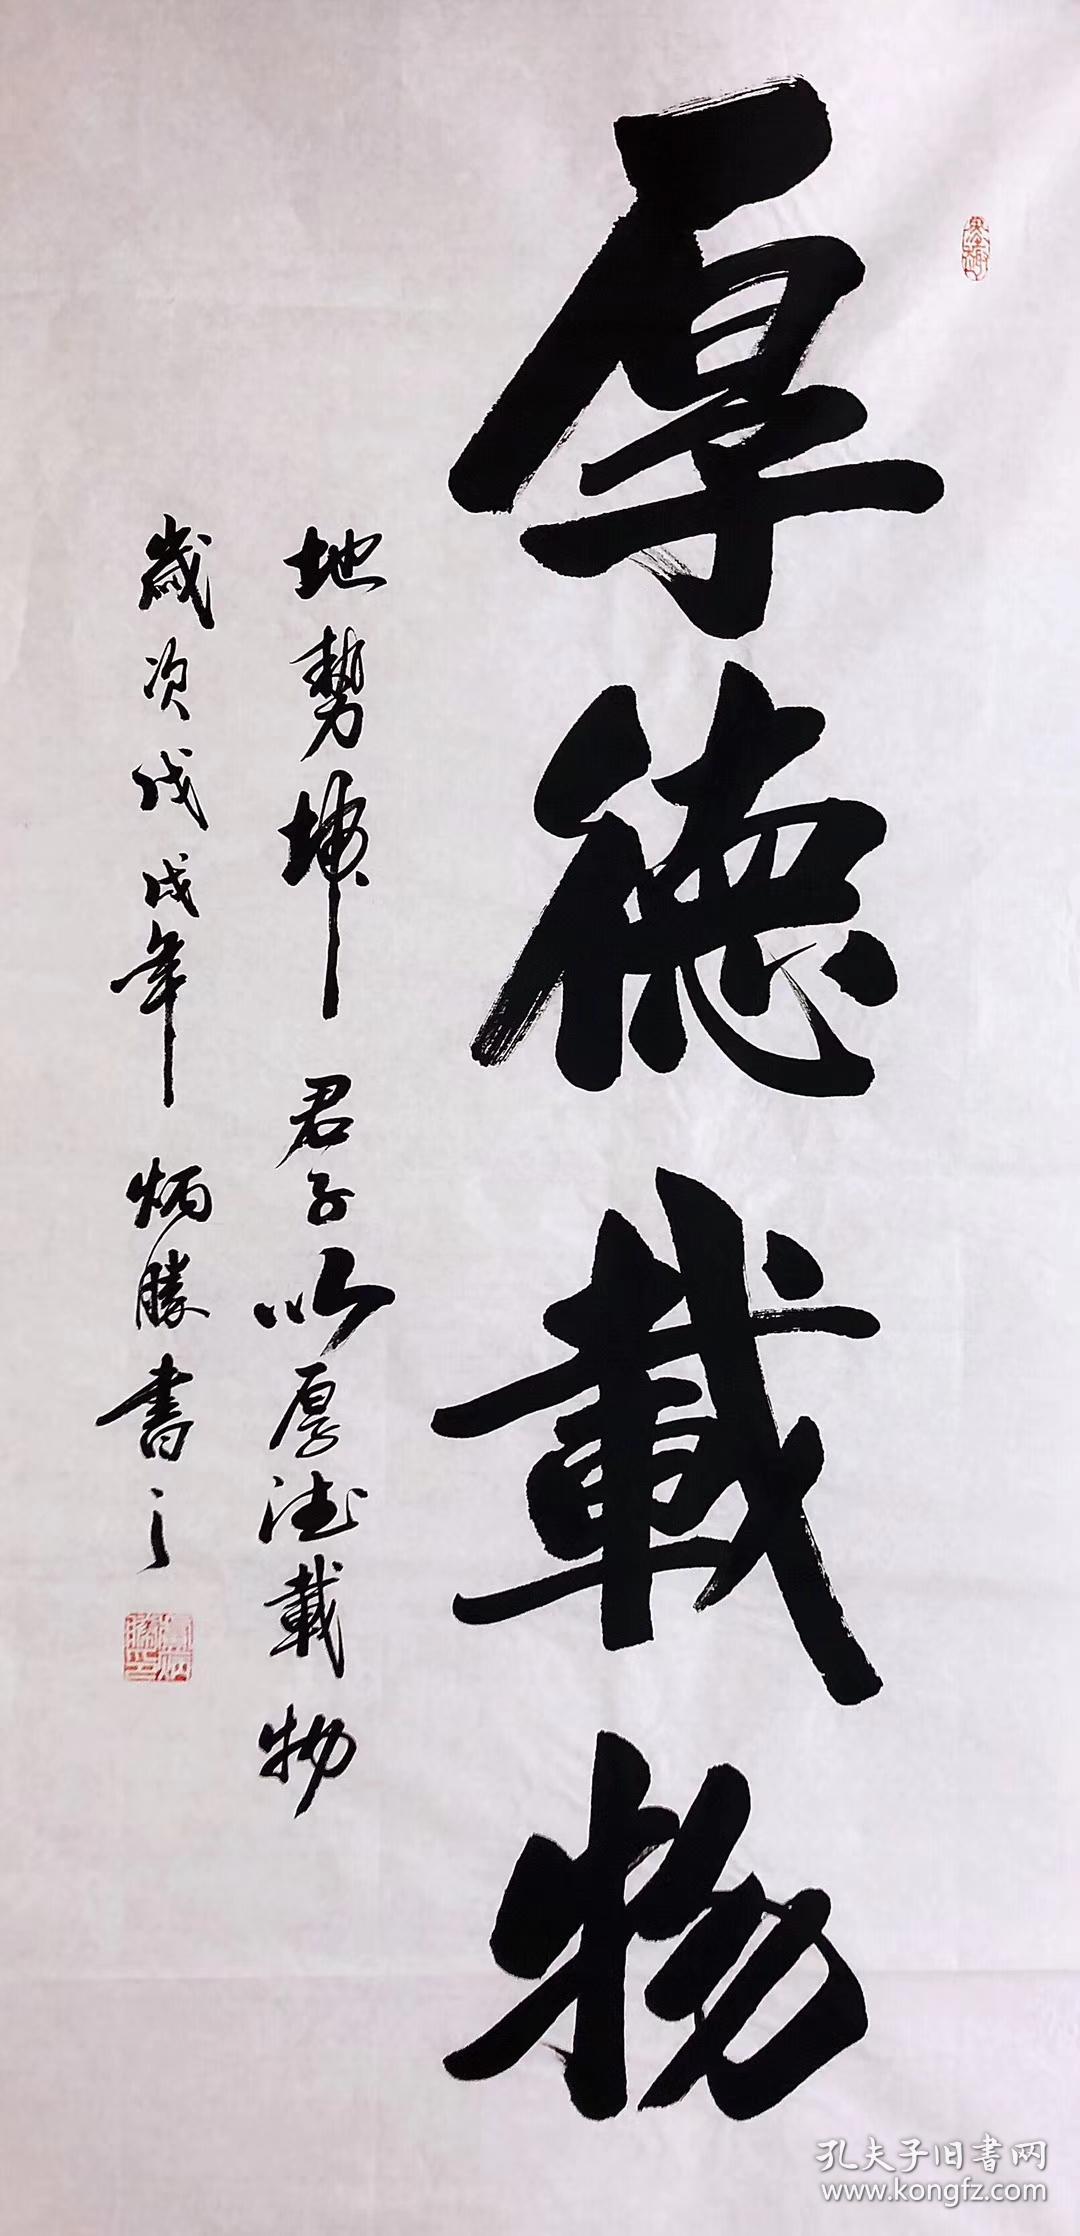 厚德載物
地勢坤君子以厚德載物
歲次戊戌年炳勝書之
孔夫子旧書网
www.kongfz.com